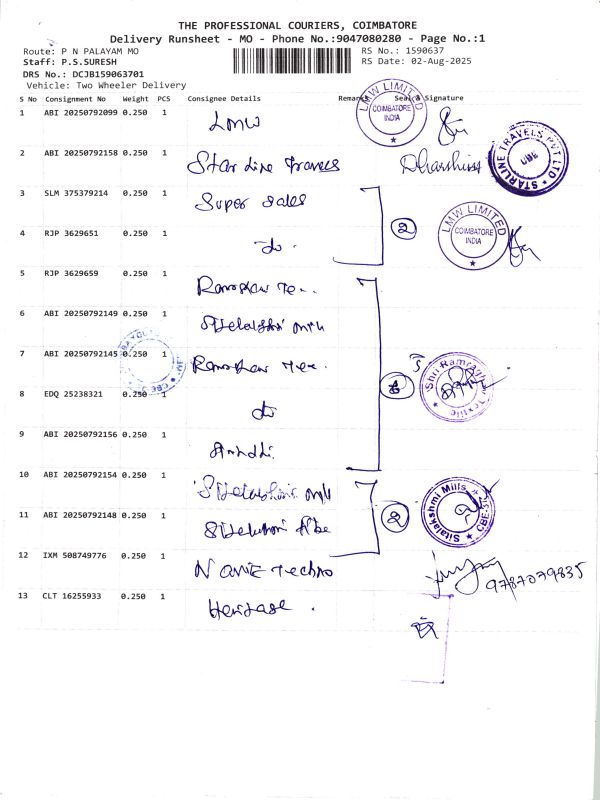 THE PROFESSIONAL COURIERS, COIMBATORE
Delivery Runsheet - MO - Phone No.:9047080280 - Page No.:1
Route: P N PALAYAM MO
RS No.: 1590637
Staff: P.S.SURESH
RS Date: 02-Aug-2025
DRS No.: DCJB159063701
Vehicle: Two Wheeler Delivery
S No Consignment No Weight PCS Consignee Details Remark Seal & Signature
1 ABI 20250792099 0.250 1 LMW
LMW LIMITED COIMBATORE INDIA
2 ABI 20250792158 0.250 1 Star Line Travels
STARLINE TRAVELS PVT LTD CBE
3 SLM 375379214 0.250 1 Super Sales
4 RJP 3629651 0.250 1 do.
2
LMW LIMITED COIMBATORE INDIA
5 RJP 3629659 0.250 1
6 ABI 20250792149 0.250 1
7 ABI 20250792145 0.250 1
8 EDQ 25238321 0.250 1 do
9 ABI 20250792156 0.250 1
10 ABI 20250792154 0.250 1
11 ABI 20250792148 0.250 1
2
Sitalakshmi Mills
12 IXM 508749776 0.250 1 Techno
9787079835
13 CLT 16255933 0.250 1 Heritage